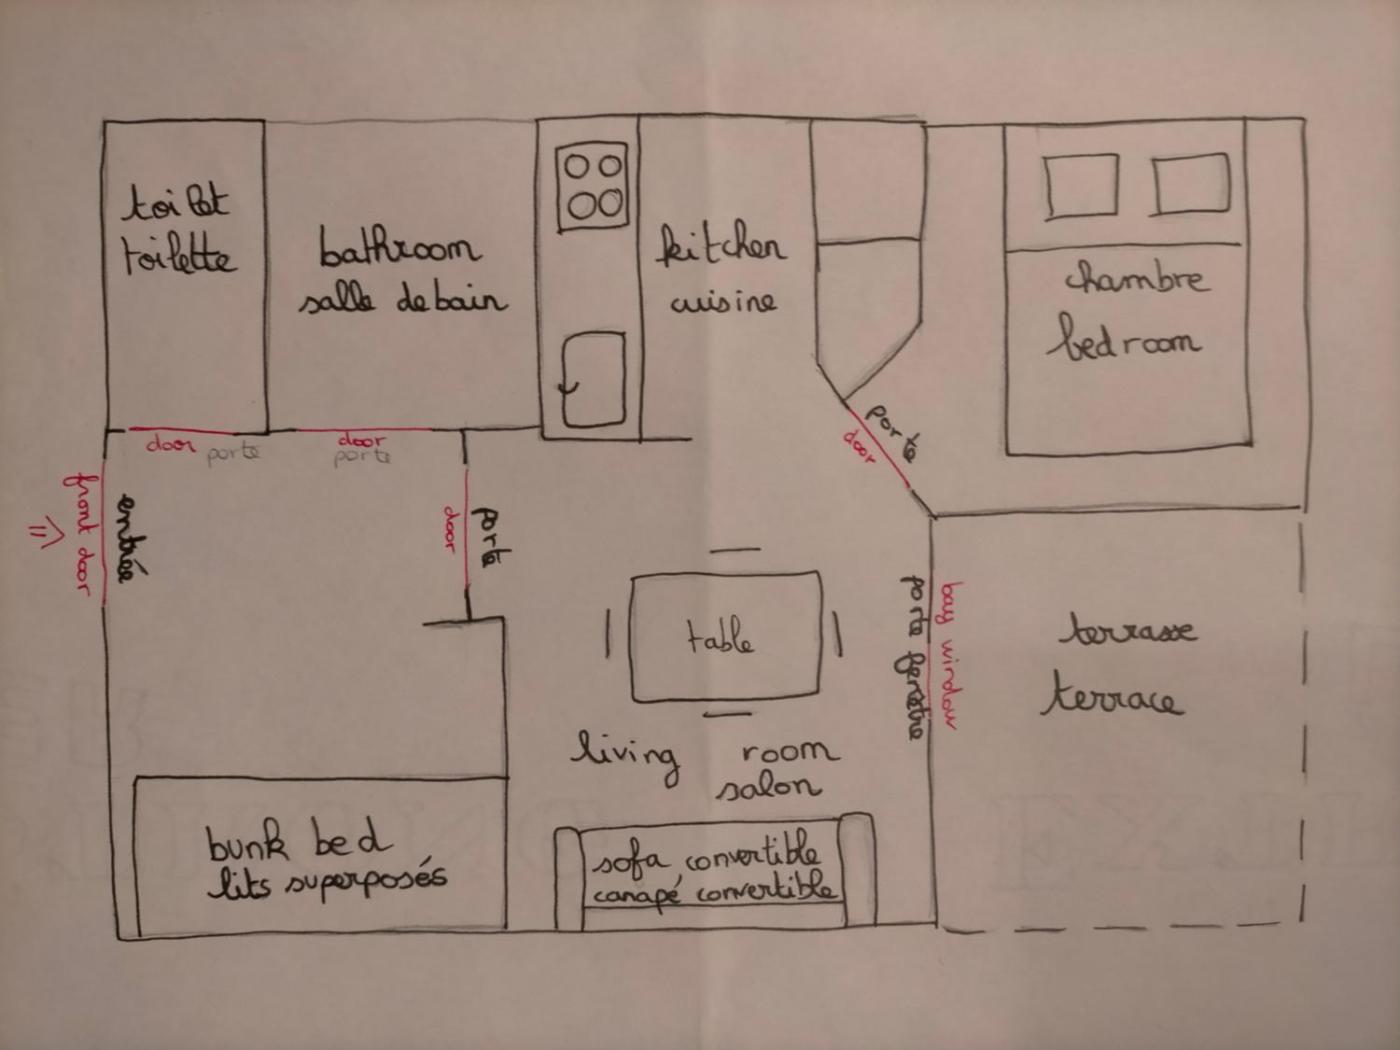 toilet
toilette
bathroom
salle de bain
kitchen
cuisine
chambre
bedroom
door porte
door
porte
porte
door
front door
entrée
door
porte
table
porte fenêtre
bay window
terrasse
terrace
living room
salon
bunk bed
lits superposés
sofa convertible
canapé convertible